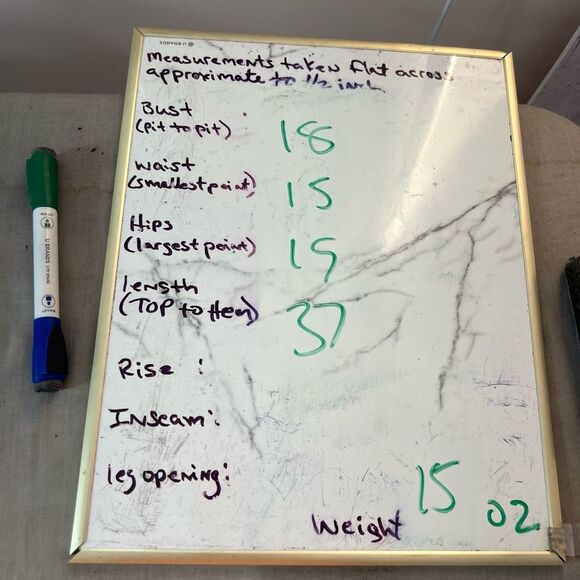 U BRANDS
Measurements taken flat across
approximate to 1/2 inch
Bust
(pit to pit) 18
waist
(smallest point) 15
Hips
(largest point) 19
length
(TOP to Hem) 37
Rise :
Inseam:
leg opening:
Weight 15 oz
U BRANDS